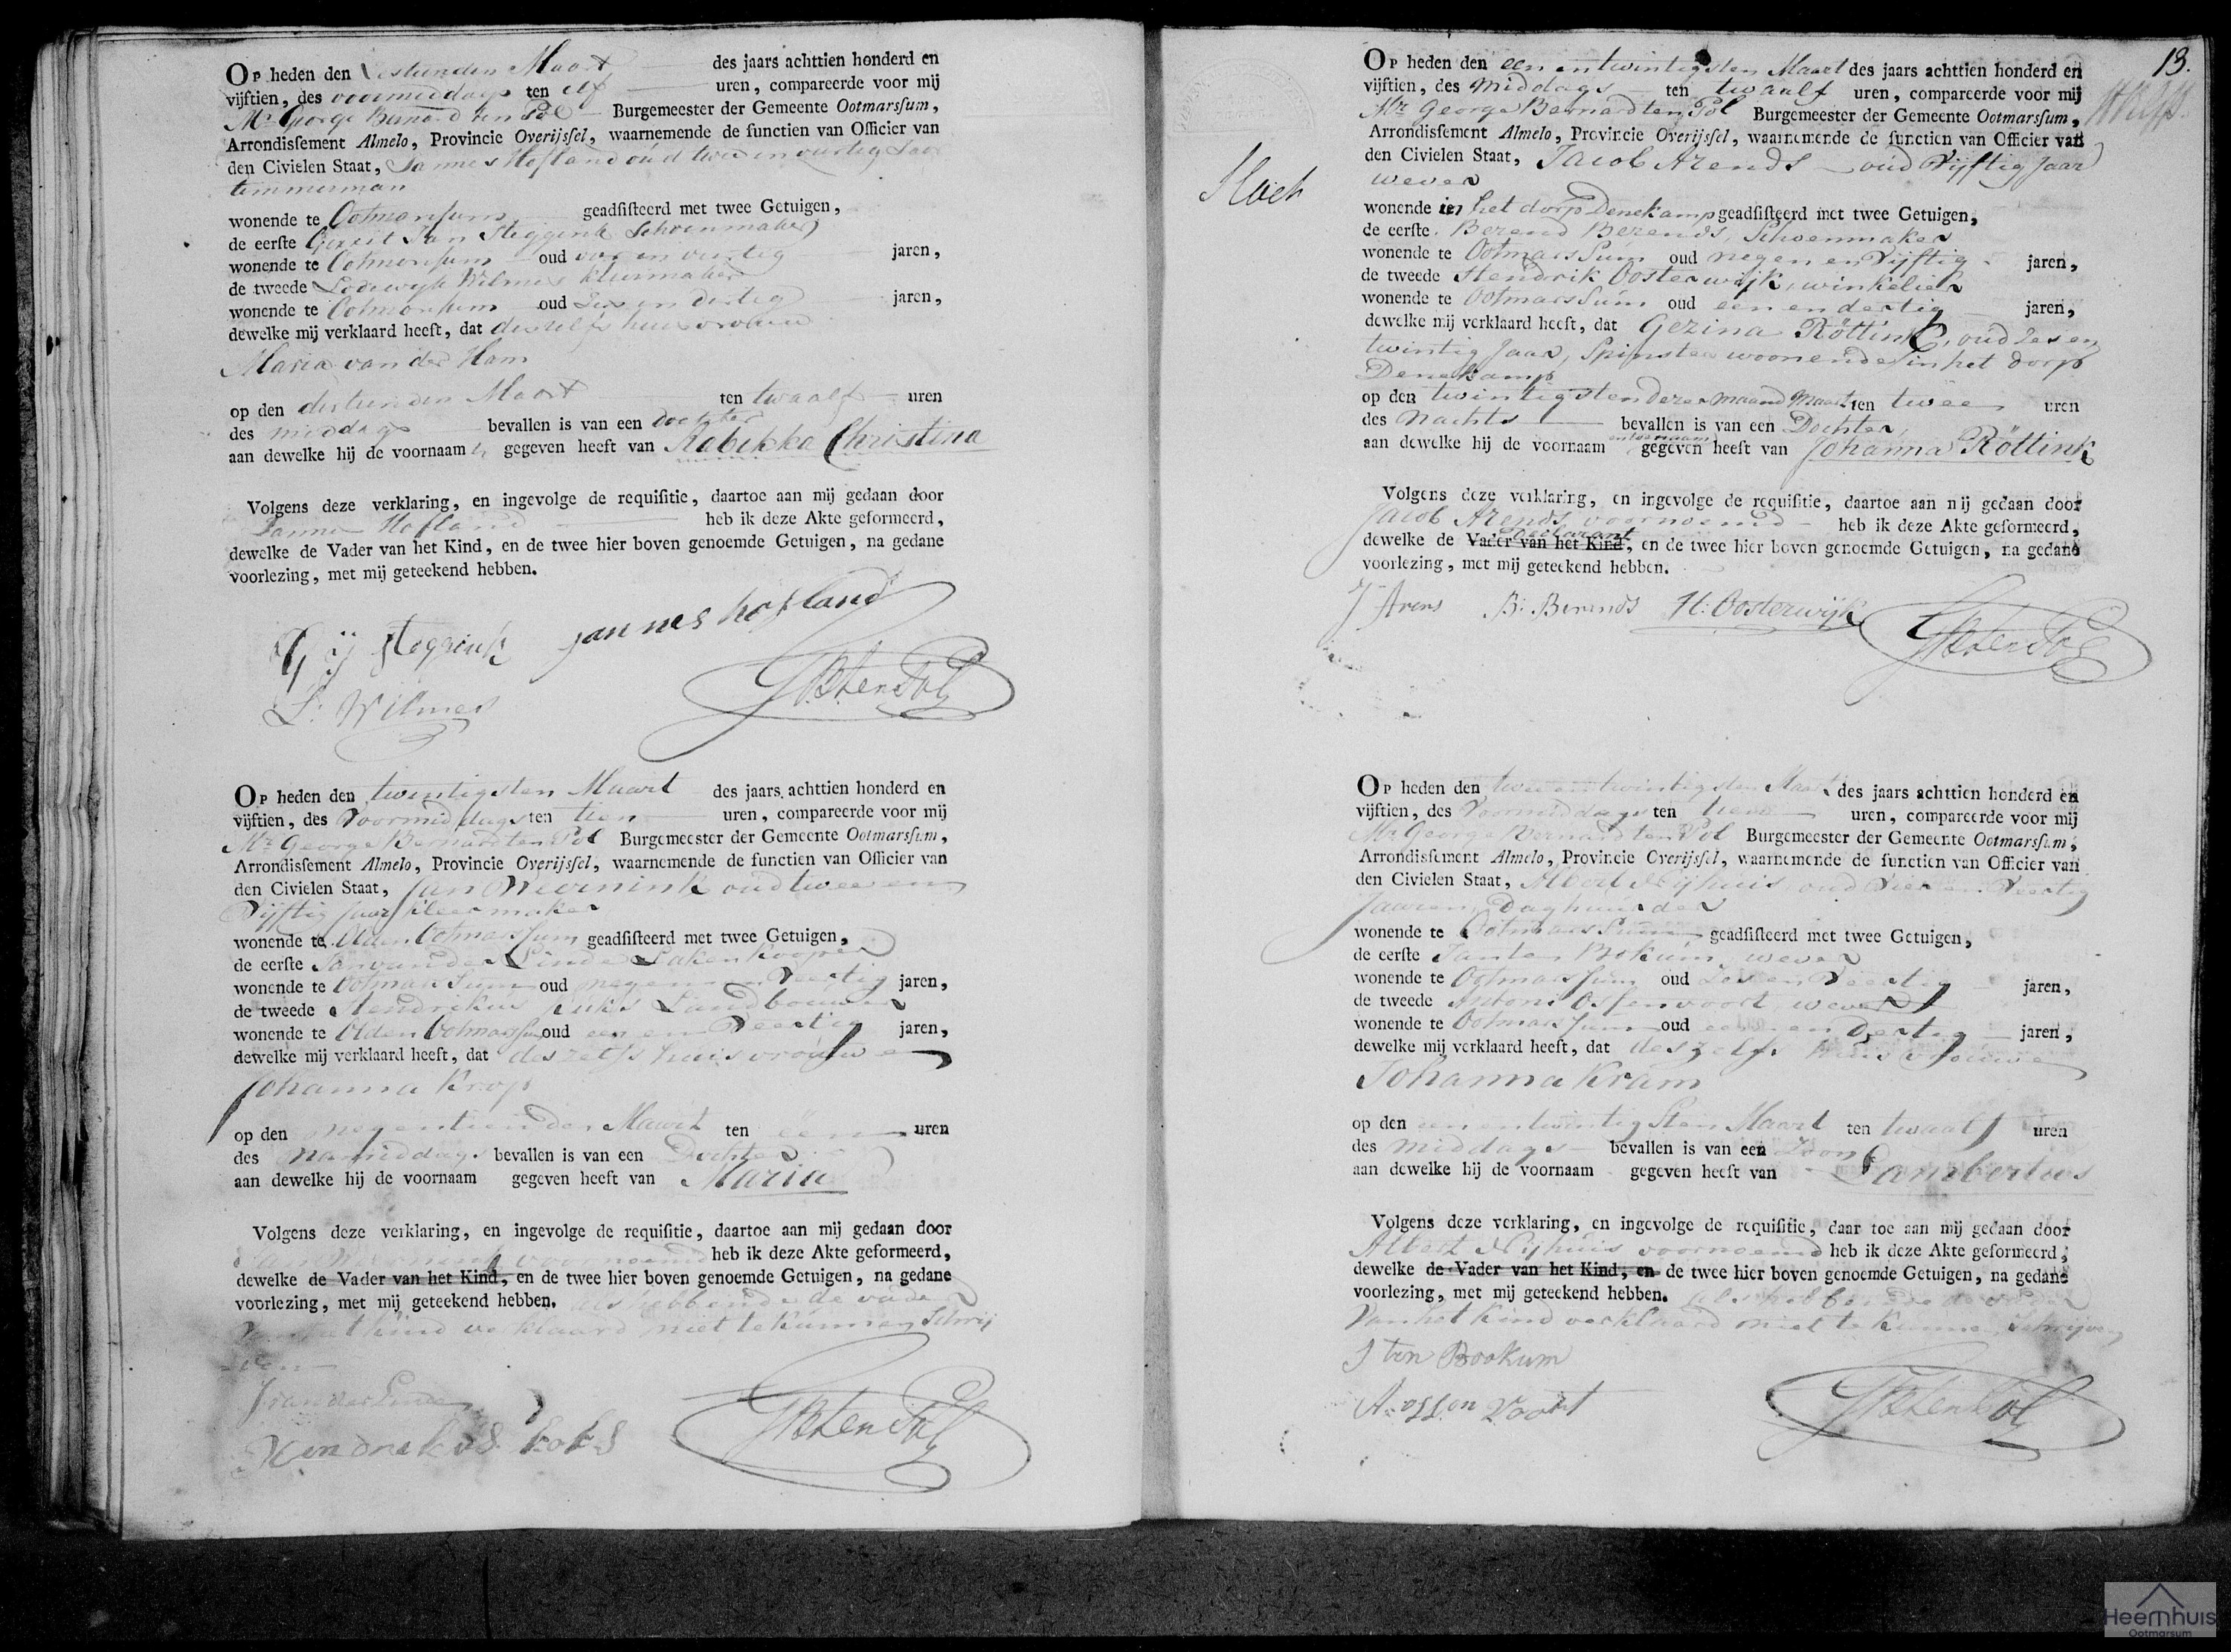 Op heden den Sestienden Maart des jaars achttien honderd en
vijftien, des voormiddags ten elf uren, compareerde voor mij
Mr George Bernard ten Pol Burgemeester der Gemeente Ootmarssum,
Arrondissement Almelo, Provincie Overijssel, waarnemende de functien van Officier van
den Civielen Staat, Jannes Hofland oud twee en veertig Jaar
timmerman
wonende te Ootmarssum geadsisteerd met twee Getuigen,
de eerste Gerrit Jan Steggink Schoenmaker
wonende te Ootmarssum oud en veertig jaren,
de tweede Lodewyk Wilmes kleermaker
wonende te Ootmarssum oud Ses en dertig jaren,
dewelke mij verklaard heeft, dat deszelfs huisvrouw
Maria van der Ham
op den distienden Maart ten twaalf uren
des middags bevallen is van een dochter
aan dewelke hij de voornaam gegeven heeft van Rebekka Christina
Volgens deze verklaring, en ingevolge de requisitie, daartoe aan mij gedaan door
Jannes Hofland heb ik deze Akte geformeerd,
dewelke de Vader van het Kind, en de twee hier boven genoemde Getuigen, na gedane
voorlezing, met mij geteekend hebben.
jannes hofland
G ij steggink
L: Wilmes
GBtenPol
Op heden den twintigsten Maart des jaars achttien honderd en
vijftien, des Voormiddags ten tien uren, compareerde voor mij
Mr George Bernard ten Pol Burgemeester der Gemeente Ootmarssum,
Arrondissement Almelo, Provincie Overijssel, waarnemende de functien van Officier van
den Civielen Staat, Jan oud twee en
Vijftig Jaar kleermaker
wonende te Olden Ootmarssum geadsisteerd met twee Getuigen,
de eerste Jan van der Linde Lakenkooper
wonende te Ootmarssum oud negen en Veertig jaren,
de tweede Hendrikus Landbouwer
wonende te Olden Ootmarssum oud een en Veertig jaren,
dewelke mij verklaard heeft, dat deszelfs huisvrouwe
Johanna Krop
op den negentienden Maart ten een uren
des namiddags bevallen is van een Dochter
aan dewelke hij de voornaam gegeven heeft van Maria
Volgens deze verklaring, en ingevolge de requisitie, daartoe aan mij gedaan door
voornoemd heb ik deze Akte geformeerd,
dewelke de Vader van het Kind, en de twee hier boven genoemde Getuigen, na gedane
voorlezing, met mij geteekend hebben. als hebbende de vader
van het kind verklaard niet te kunnen Schrij
-ven
J van der Linde
Hendrekus
GBtenPol
13.
Op heden den een en twintigsten Maart des jaars achttien honderd en
vijftien, des middags ten twaalf uren, compareerde voor mij
Mr George Bernard ten Pol Burgemeester der Gemeente Ootmarssum,
Arrondissement Almelo, Provincie Overijssel, waarnemende de functien van Officier van
den Civielen Staat, Jacob Arends oud Vijftig Jaar
wever
wonende in het dorp Denekamp geadsisteerd met twee Getuigen,
de eerste Berend Berends, Schoenmaker
wonende te Ootmarssum oud negen en Vijftig jaren,
de tweede Hendrik Oosterwijk, winkelier
wonende te Ootmarssum oud een en dertig jaren,
dewelke mij verklaard heeft, dat Gezina Röttink, oud zes en
twintig Jaar, Spinster woonende in het dorp
Denekamp
op den twintigsten dezer maand Maart ten twee uren
des nachts bevallen is van een Dochter,
aan dewelke hij de voornaam en toenaam gegeven heeft van Johanna Röttink
Volgens deze verklaring, en ingevolge de requisitie, daartoe aan mij gedaan door
Jacob Arends voornoemd heb ik deze Akte geformeerd,
dewelke de Vader van het Kind declarant, en de twee hier boven genoemde Getuigen, na gedane
voorlezing, met mij geteekend hebben.
J Arens B: Berends H: Oosterwijk
GBtenPol
Op heden den twee en twintigsten Maart des jaars achttien honderd en
vijftien, des Voormiddags ten tien uren, compareerde voor mij
Mr George Bernard ten Pol Burgemeester der Gemeente Ootmarssum,
Arrondissement Almelo, Provincie Overijssel, waarnemende de functien van Officier van
den Civielen Staat, Albert Nijhuis oud Vier en Veertig
Jaaren, Daghuurder
wonende te Ootmarssum geadsisteerd met twee Getuigen,
de eerste Jan ten Bokum, wever
wonende te Ootmarssum oud Zes en Veertig jaren,
de tweede Antoni Ossenvoort, wever
wonende te Ootmarssum oud een en Dertig jaren,
dewelke mij verklaard heeft, dat deszelfs huisvrouwe
Johanna Kram
op den een en twintigsten Maart ten twaalf uren
des middags bevallen is van een Zoon
aan dewelke hij de voornaam gegeven heeft van Lambertus
Volgens deze verklaring, en ingevolge de requisitie, daar toe aan mij gedaan door
Albert Nijhuis voornoemd heb ik deze Akte geformeerd,
dewelke de Vader van het Kind, en de twee hier boven genoemde Getuigen, na gedane
voorlezing, met mij geteekend hebben. als hebbende de vader
Van het Kind verklaard niet te kunnen Schrijven
J ten Bookum
A: ossen voort
GBtenPol
Heemhuis
Ootmarsum